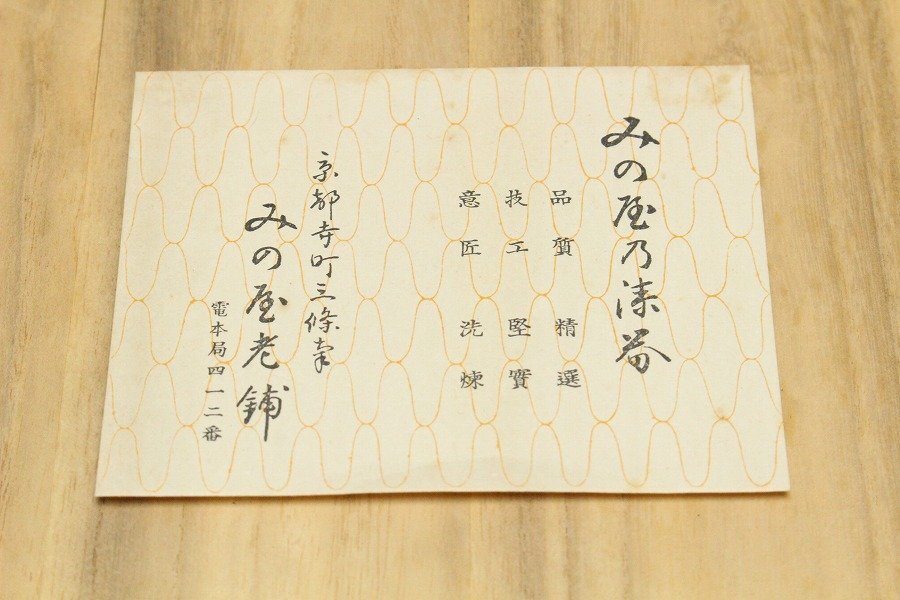 みの屋乃漆器
品質精選
技工堅實
意匠洗煉
京都寺町三條南
みの屋老舗
電本局四一二番